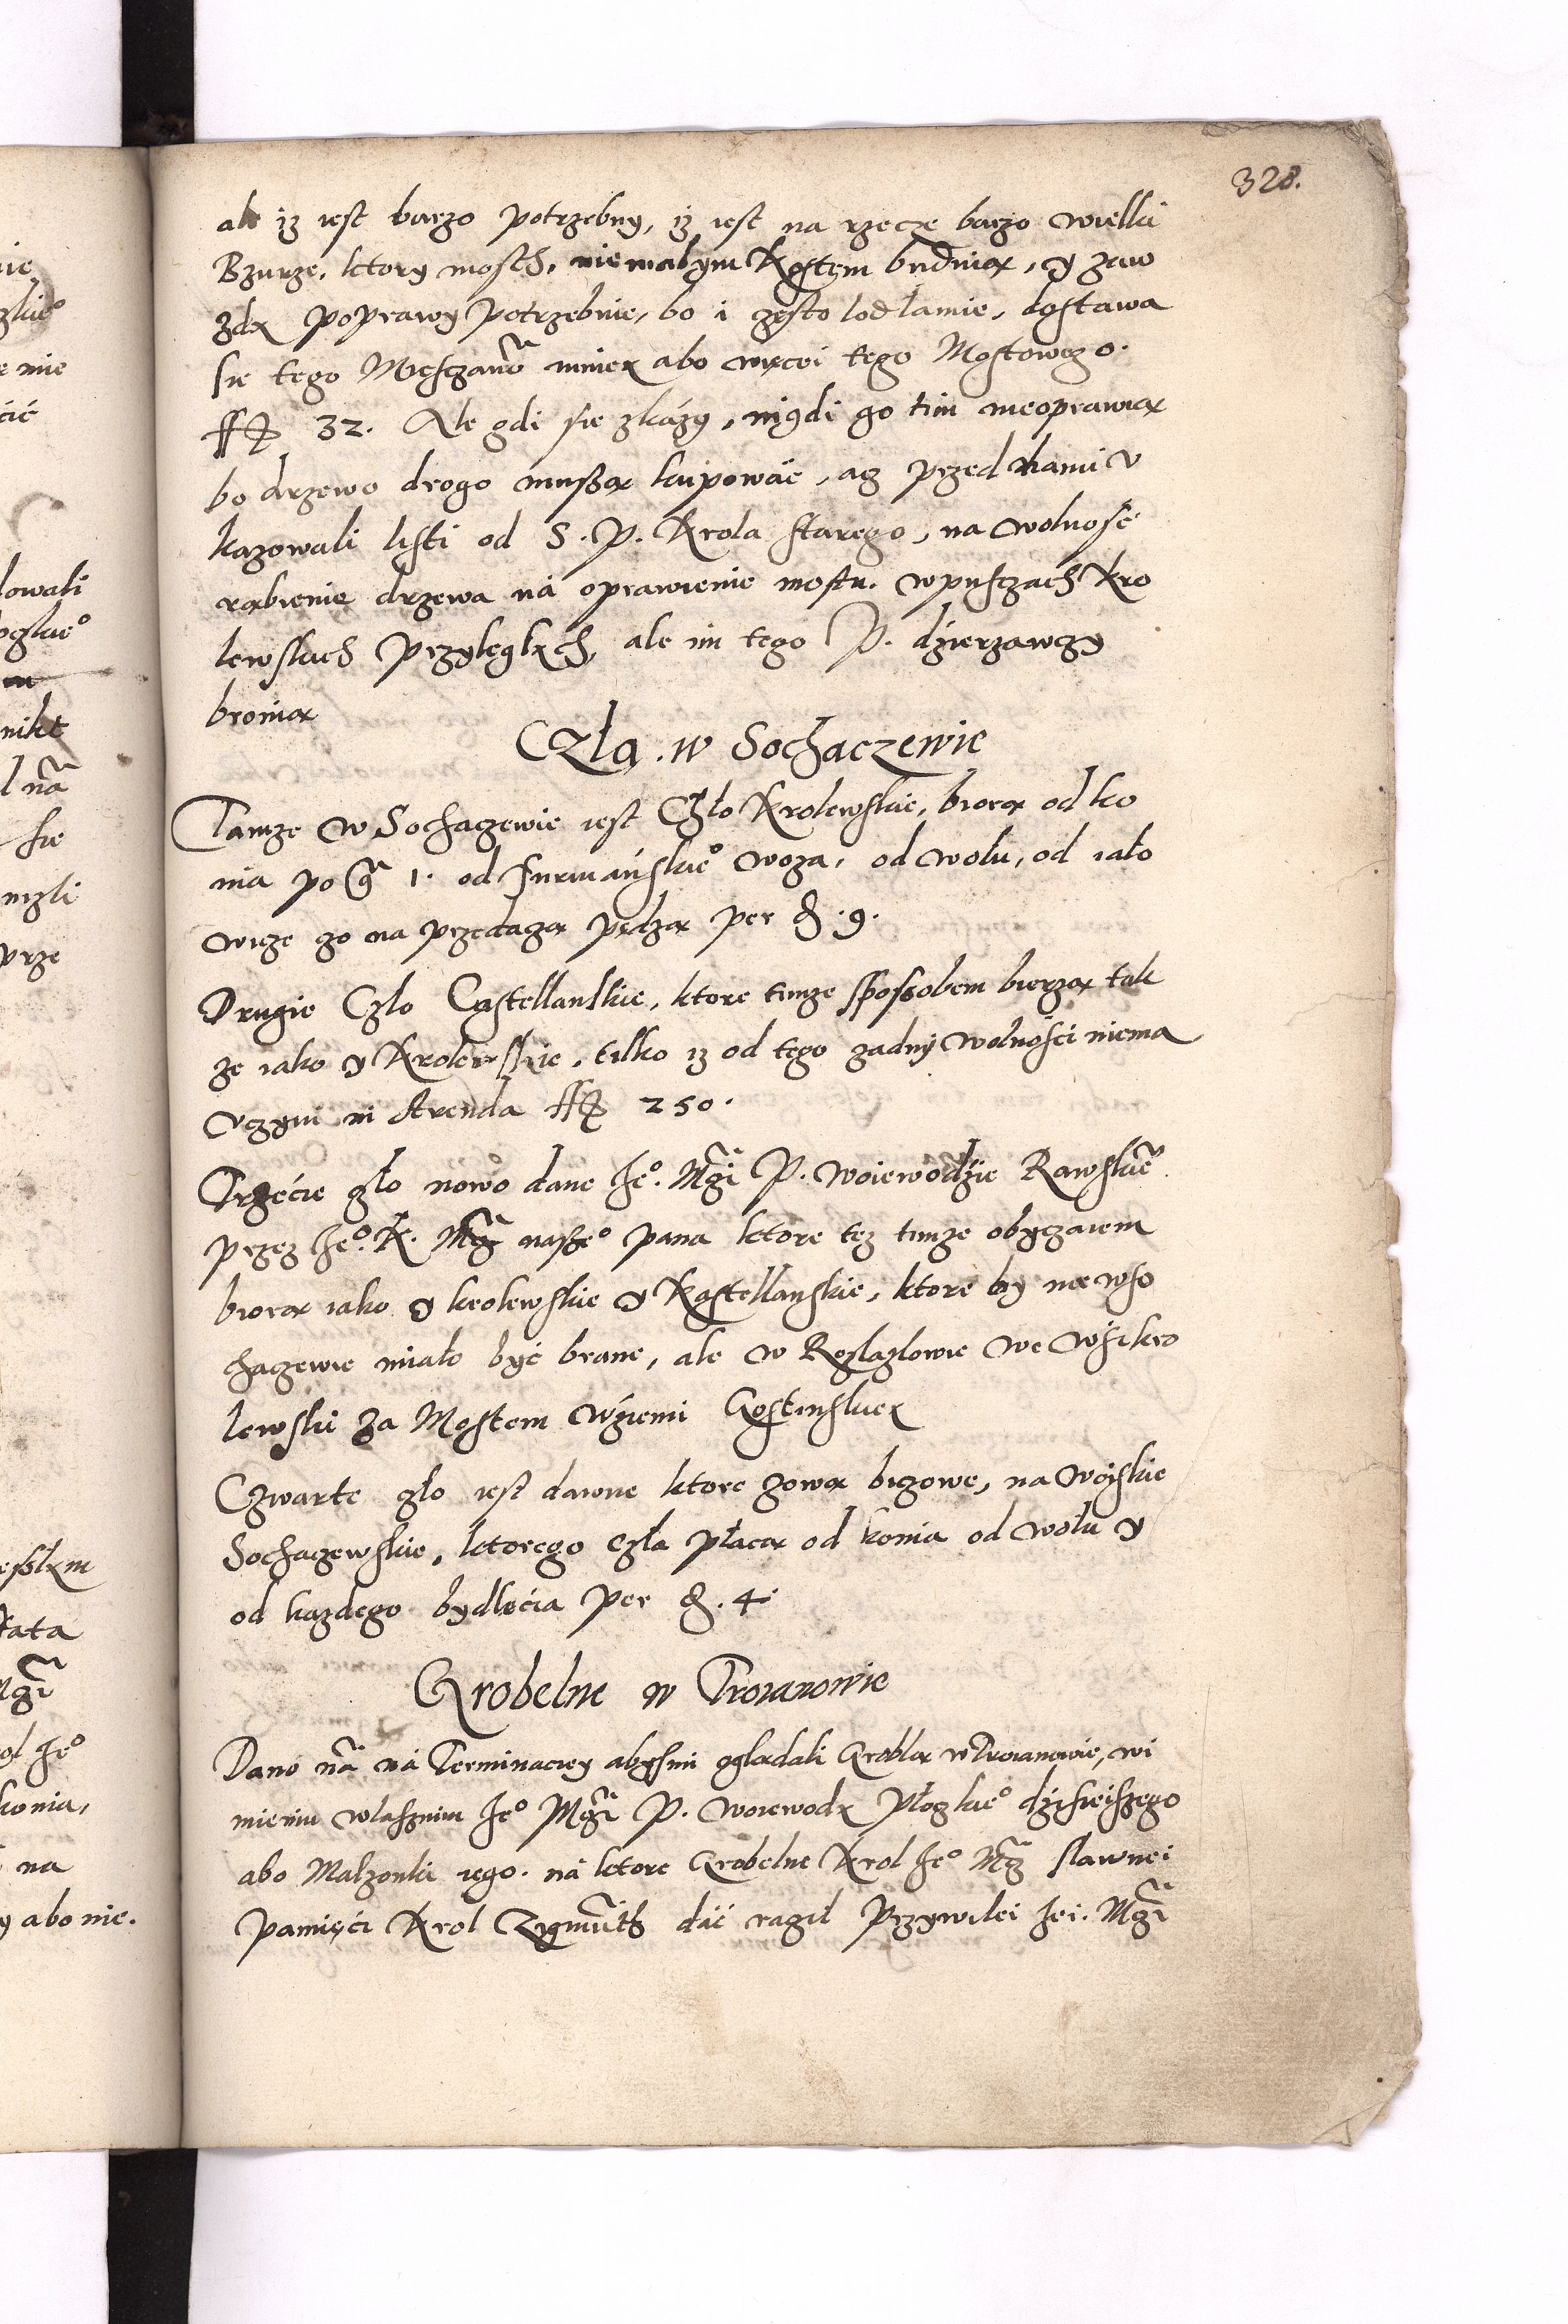 328.
ale iz iest barzo potrzebny, iz iest na rzecze barzo wielki
Bzurze, ktory mosth, niemalym Kostem buduią, y zaw
zdy poprawy potrzebuie, bo i gęsto lod łamie, dostawa
sie tego Miesczano͂ mniey abo więcei tego Mostowego.
ff 32. Ale gdi sie zkázy, nigdi go tim nieoprawią
bo drzewo drogo mußą kupowáć, az przed nami v
kazowali listi od S. P. Krola starego, na wolnosć
rąbienie drzewa ná oprawienie mostu. wpusczach Kro
lewskich Przyleglych, ale im tego P. dzierzawczy
bronią
Czla. w Sochaczewie
Tamze w Sochaczewie iest Czło Krolewskie, biorą od ko
nia po g͂ 1. od furmáńskie° woza, od wołu, od iało
wicze go na przedazą pędzą per ₰. 9.
Drugie Czlo Castellanskie, ktore timze sposobem bierzą tak
ze iako y Krolewskie, tilko iz od tego zadny wolności niema
vczyni in Arenda ff 250.
Trzećie zło nowo dane Je°. Mg͂i P. woiewodzie Rawskie͂
przez Je°. K. Mcz͂ naße° pana ktore tez timze obyczaiem
biorą iako y krolewskie y Kastellanskie, ktore by nie wso
chaczewie miało być brane, ale w Rozlazlowie we wśi kro
lewski za Mostem wziemi Gostinskiey
Czwarte zło iest dawne ktore zową bizowe, na woyskie
Sochaczewskie, ktorego czla płacą od konia od wołu y
od kazdego bydlećia per ₰. 4.
Grobelne w Troianowie
Dano na͂ ná Terminaciey abysmi oglądali Groblą w Troianowie, wi
mieniu własznim Je° Mg͂i P. woiewody Płozkie° dzisieiszego
abo Malzonki iego. ná ktore Grobelne Krol Je° Mcz͂ slawnei
pamięći Krol Zigmu͂th dáć raził Przywilei Jei. Mg͂i